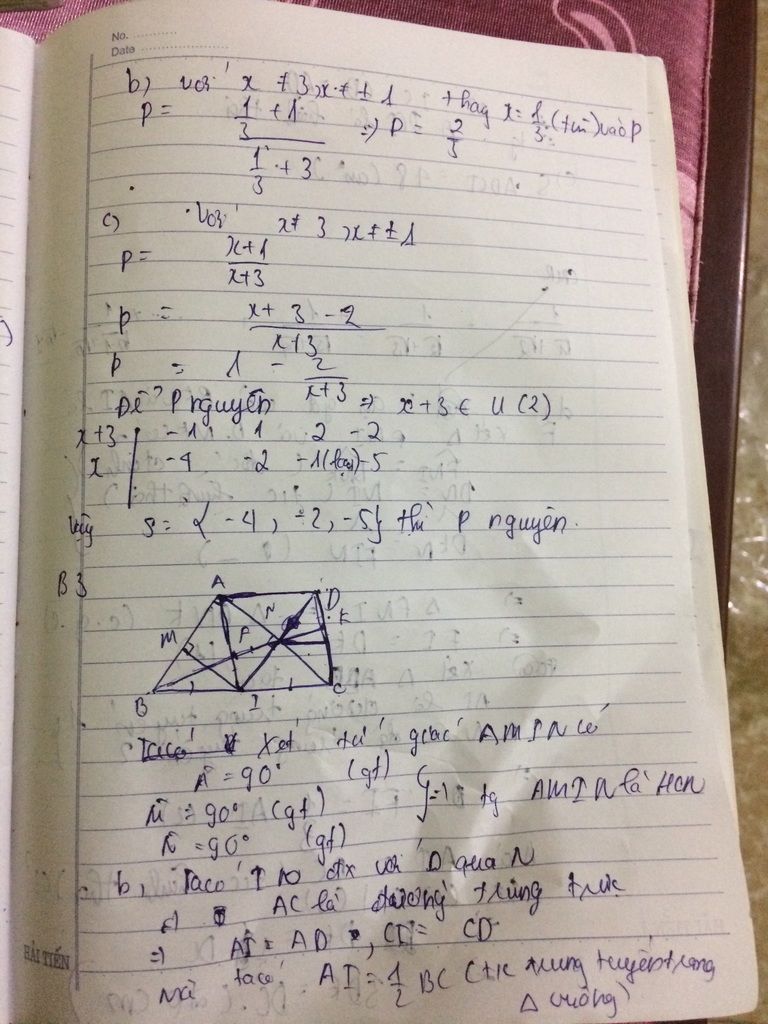 No. ............
Date ........................
b) với x ≠ 3, x ≠ ± 1 thay x = 1/3 (tm) vào P
P = (1/3 + 1)/(1/3 + 3) => P = 2/5
c) Với x ≠ 3, x ≠ ± 1
P = (x+1)/(x+3)
P = (x + 3 - 2)/(x+3)
P = 1 - 2/(x+3)
Để P nguyên => x+3 ∈ Ư(2)
x+3 | -1 1 2 -2
x | -4 -2 -1 (loại) -5
Vậy S = { -4, -2, -5} thì P nguyên.
B3
A D
N K
M F
B I C
Xét tứ giác AMIN có
Â = 90° (gt)
M̂ = 90° (gt) } => tg AMIN là HCN
N̂ = 90° (gt)
b, Ta có I đx với D qua N
=> AC là đường trung trực
=> AI = AD, CI = CD
Mà ta có AI = 1/2 BC (t/c trung tuyến trong
Δ vuông)
HẢI TIẾN